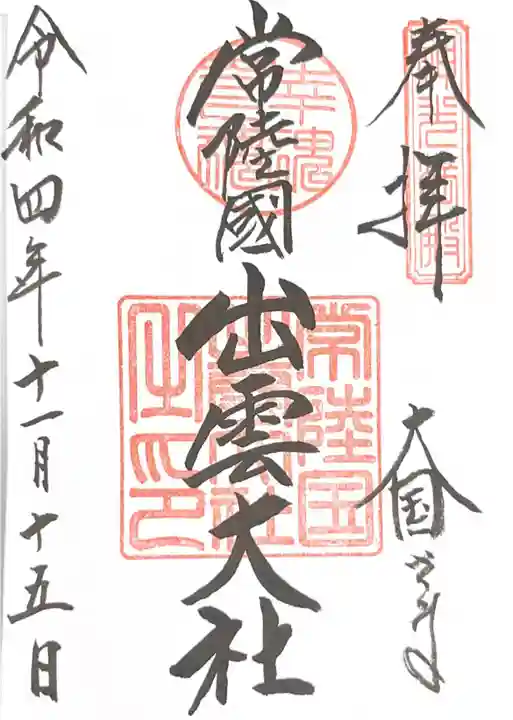 奉拝
大国
常陸國
出雲大社
常陸国
出雲大社
之印
令和四年十一月十五日